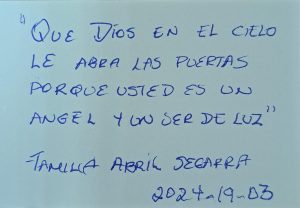 "QUE DIOS EN EL CIELO
LE ABRA LAS PUERTAS
PORQUE USTED ES UN
ANGEL Y UN SER DE LUZ"
ABRIL SEGARRA
2024-19-03